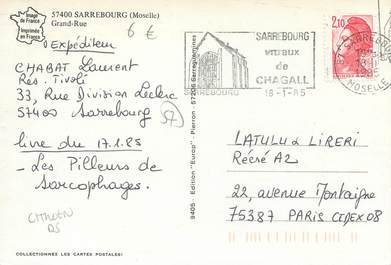 57400 SARREBOURG (Moselle)
Grand-Rue
Image
de
France
Imprimée
en France
6 €
Expéditeur
CHABAT Laurent
Rés. Tivoli
33, Rue Division Leclerc
57400 Sarrebourg
57
livre du 17.1.85
- Les Pilleurs de
Sarcophages.
COLLECTIONNEZ LES CARTES POSTALES!
9405 - Edition "Europ" - Pierron - 57206 Sarreguemines
SARREBOURG
vitraux
de
CHAGALL
SARREBOURG 18-1-85
2,10
SARREBOURG
MOSELLE
LATULU & LIRELI
Récré A2
22, avenue Montaigne
75387 PARIS CEDEX 08